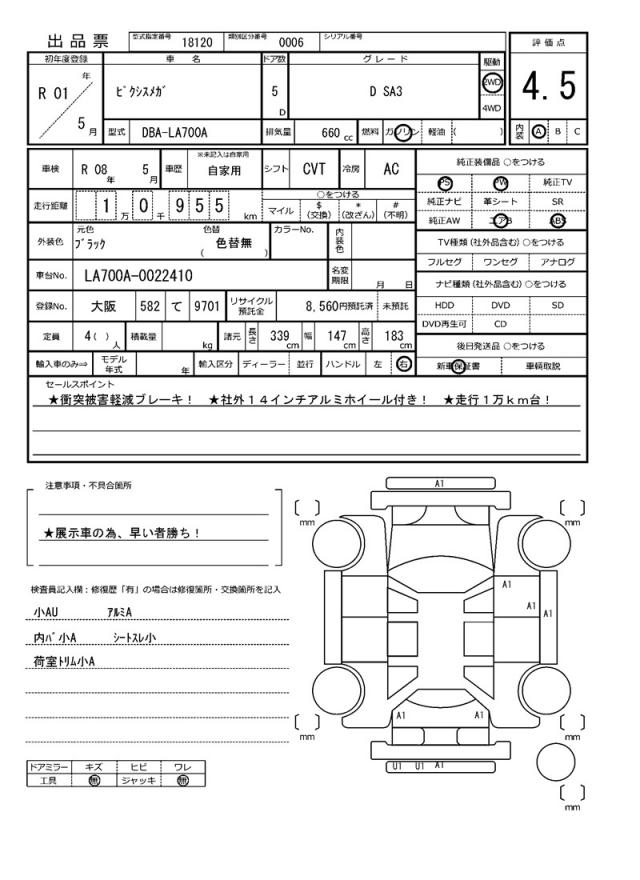 出品票
型式指定番号 18120 類別区分番号 0006 シリアル番号
評価点
4.5
内装 A B C
初年度登録 車名 ドア数 グレード 駆動
R 01 年 5 月
ﾋﾟｸｼｽﾒｶﾞ 5 D D SA3 2WD 4WD
型式 DBA-LA700A 排気量 660 cc 燃料 ガソリン 軽油 ( )
車検 R 08 年 5 月 車歴 ※未記入は自家用 自家用 シフト CVT 冷房 AC
走行距離 1 万 0 千 9 5 5 km
○をつける
マイル $ (交換) * (改ざん) # (不明)
外装色 元色 ﾌﾞﾗｯｸ 色替 ( 色替無 ) カラーNo. 内装色
車台No. LA700A-0022410 名変期限 月 日
登録No. 大阪 582 て 9701 リサイクル預託金 8,560円預託済 未預託
定員 4( ) 人 積載量 kg 諸元 長さ 339 cm 幅 147 cm 高さ 183 cm
輸入車のみ⇒ モデル年式 年 輸入区分 ディーラー 並行 ハンドル 左 右
純正装備品 ○をつける
PS PW 純正TV
純正ナビ 革シート SR
純正AW エアB ABS
TV種類(社外品含む)○をつける
フルセグ ワンセグ アナログ
ナビ種類(社外品含む)○をつける
HDD DVD SD
DVD再生可 CD
後日発送品 ○をつける
新車保証書 車輌取説
セールスポイント
★衝突被害軽減ブレーキ! ★社外14インチアルミホイール付き! ★走行1万km台!
注意事項・不具合箇所
★展示車の為、早い者勝ち!
検査員記入欄:修復歴「有」の場合は修復箇所・交換箇所を記入
小AU ｱﾙﾐA
内ﾊﾞ小A ｼｰﾄｽﾚ小
荷室ﾄﾘﾑ小A
ドアミラー キズ ヒビ ワレ
工具 無 ジャッキ 無
A1
[ ] mm [ ] mm
A1
A1 A1
A1 A1
[ ] mm [ ] mm
U1 U1 A1
[ ] mm